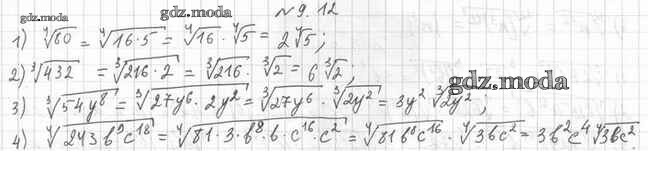 gdz.moda gdz.moda №9.12
1) ∜80 = ∜(16·5) = ∜16 · ∜5 = 2∜5;
2) ∛432 = ∛(216·2) = ∛216 · ∛2 = 6∛2;
gdz.moda
3) ∛(54y⁸) = ∛(27y⁶·2y²) = ∛(27y⁶) · ∛(2y²) = 3y² ∛(2y²);
4) ∜(243b⁹c¹⁸) = ∜(81·3·b⁸·b·c¹⁶·c²) = ∜(81b⁸c¹⁶) · ∜(3bc²) = 3b²c⁴ ∜(3bc²).